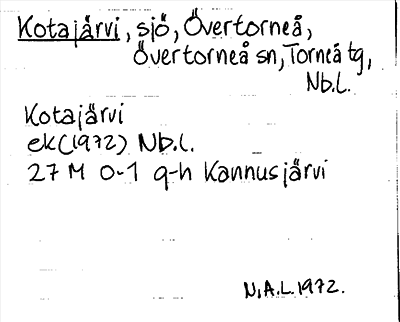 Kotajärvi, sjö, Övertorneå,
Övertorneå sn, Torneå tg,
Nb.l.
Kotajärvi
ek(1972) Nb.l.
27 M 0-1 g-h Kannusjärvi
N.A.L. 1972.